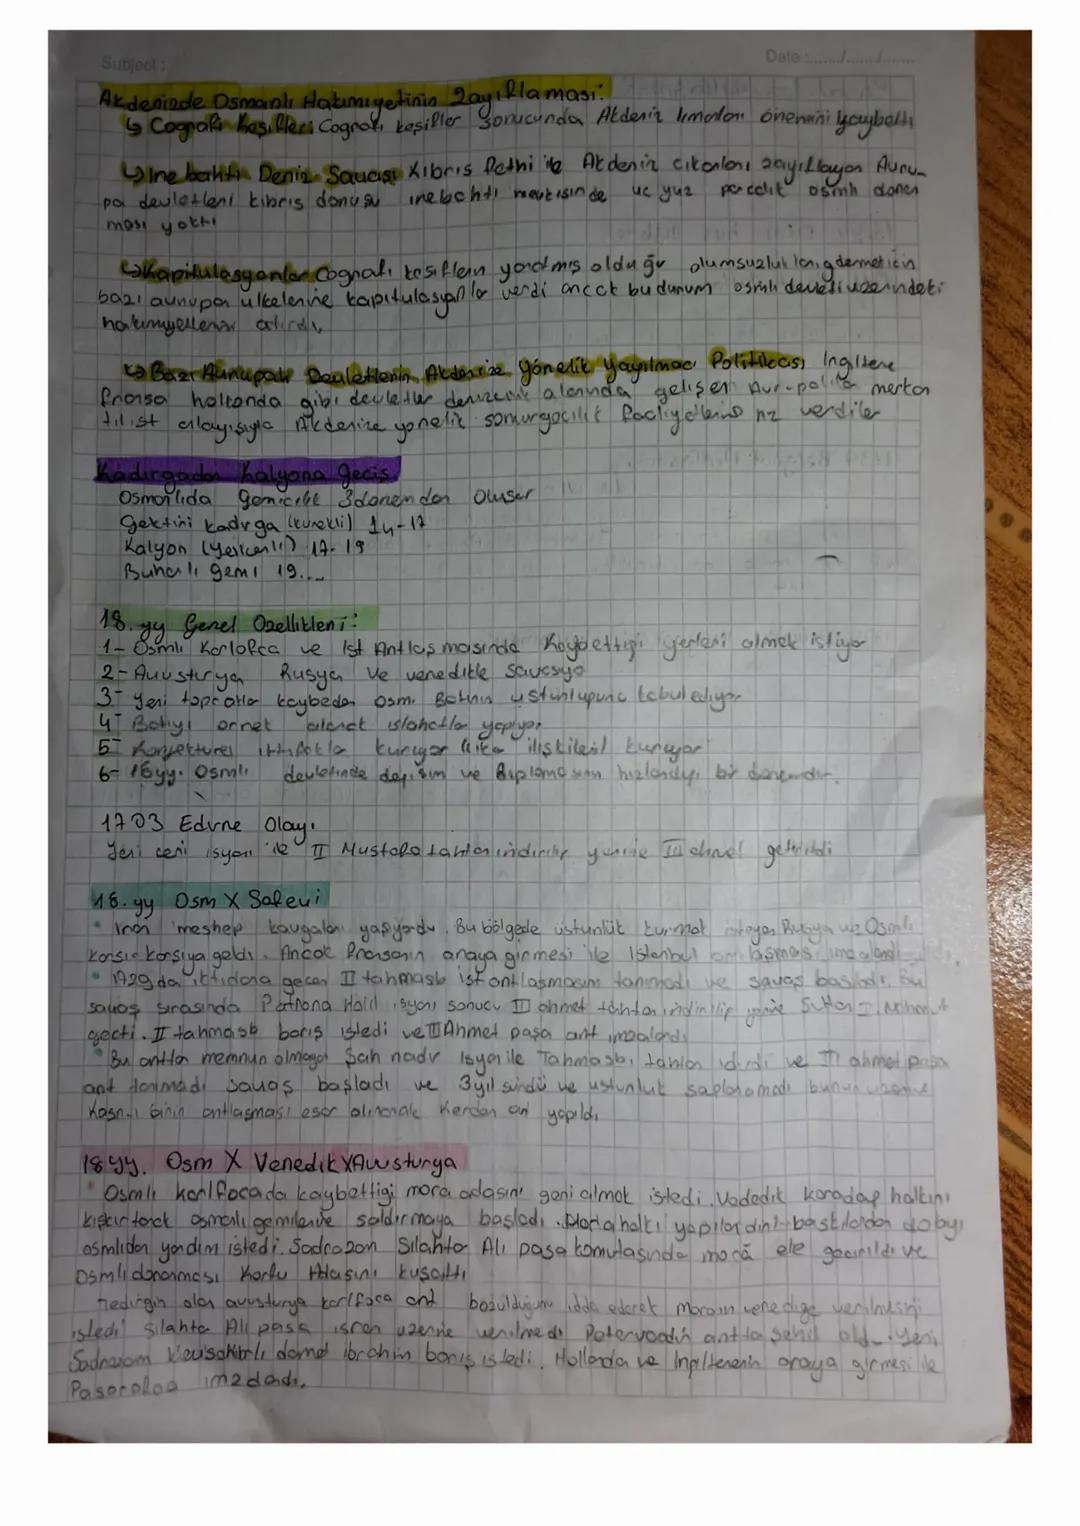 Subject: Date:....../....../......
Akdenizde Osmanlı Hakimiyetinin Zayıflaması:
↳ Cografi Keşifleri Cografi keşifler sonucunda Akdeniz limanları önemini kaybetti
↳ İnebahtı Deniz Savaşı Kıbrıs fethi ile Akdeniz cıkarları zayıflayan Avru-
pa devletleri kıbrıs donusu inebahtı mevkisinde uc yuz parcalık osmlı donan
ması yoktı
↳ Kapitulasyonlar Cografi kesiflerin yaratmıs olduğu olumsuzlukları gidermek icin
bazı avrupa ulkelerine kapıtulasyonlar verdi ancak bu durum osmlı devleti uzerindeki
hakımıyetlerını artırdı
↳ Bazı Avrupalı Devletlerin Akdenize Yönelik Yayılmacı Politikası İngiltere
fransa hollanda gibi devletler denizcilik alanında gelişen Avr-politika merkan
tilist anlayışıyla Akdenize yonelik somurgecilik faaliyetlerine hız verdiler
Kadırgadan Kalyona Gecis
Osmanlıda gemicilik 3 donemden Olusur
Cektiri kadırga (kurekli) 14-17
Kalyon (yelkenli) 17-19
Buharlı gemi 19....
18. yy Genel Ozellikleri:
1- Osmlı Karlofca ve İst Antlaşmasında Kaybettiği yerleri almak istiyor
2- Avusturya Rusya ve venedikle savasıyo
3- Yeni topraklar kaybeden osm. Batının ustunlugunu kabul ediyor
4- Batıyı ornek alarak ıslahatlar yapıyor
5- Konjekturel ittifaklar kuruyor ilişkileri kuruyor
6- 18yy. Osmlı devletinde degişim ve diplomasının hızlandıgı bir donemdir.
1703 Edirne Olayı
Yeni ceri isyanı ile II Mustafa tahtan indirilip yerine III ahmet getirildi
18. yy Osm X Safevi
• İran meshep kavgaları yaşıyordu. Bu bölgede üstünlük kurmak isteyen Rusya ve Osmlı
karsı karsıya geldi. Ancak Fransanın araya girmesi ile İstanbul antlaşması imzalandı
• 1729 da iktidara gecen II tahmasb ist antlaşmasını tanımadı ve savaş başladı. Bu
savaş sırasında Patrona Halil isyanı sonucu III ahmet tahtan indirilip yerine Sultan I. Mahmut
gecti. II tahmasb barış istedi ve Ahmet paşa ant imzalandı
• Bu anttan memnun olmayan Şah nadir isyan ile Tahmasbı tahtan idirdi ve ahmet paşa
ant tanımadı savaş başladı ve 3 yıl sürdü ve ustunluk saglanamadı bunun uzerine
Kasrı Şirin antlaşması esas alınarak Kerden ant yapıldı
18 yy. Osm X Venedik X Avusturya
• Osmlı karlfocada kaybettigi mora adasını geri almak istedi. Vedenik karadag halkını
kışkırtarak osmanlı gemilerine saldırmaya başladı. Mora halkı yapılan dini baskılardan dolayı
osmlıdan yardım istedi. Sadrazam Silahtar Ali paşa komutasında mora ele gecirildi ve
Osmlı donanması Korfu Adasını kuşattı
Tedirgin olan avusturya karlfoca ant bozulduğunu iddia ederek moranın venedige verilmesini
istedi silahtar Ali paşa ısrarı uzerine verilmedi Petervaradin antta şehid oldu. Yeni
Sadrazam Nevsehirli damat ibrahim barış istedi. Hollanda ve İngilterenin araya girmesi ile
Pasarofça imzalandı.